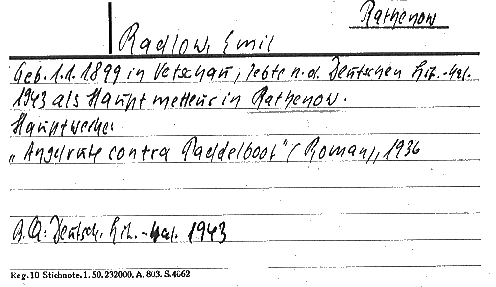 Rathenow
Radlow, Emil
Geb. 1.1.1899 in Vetschau, lebte n. d. Deutschen Lit.-Kal.
1943 als Hauptmetteur in Rathenow.
Hauptwerke:
„Angelrute contra Paddelboot" (Roman), 1936
B.Q: Deutsch. Lit.-Kal. 1943
Reg. 10 Stichnote. 1. 50. 232000. A. 803. S. 4662